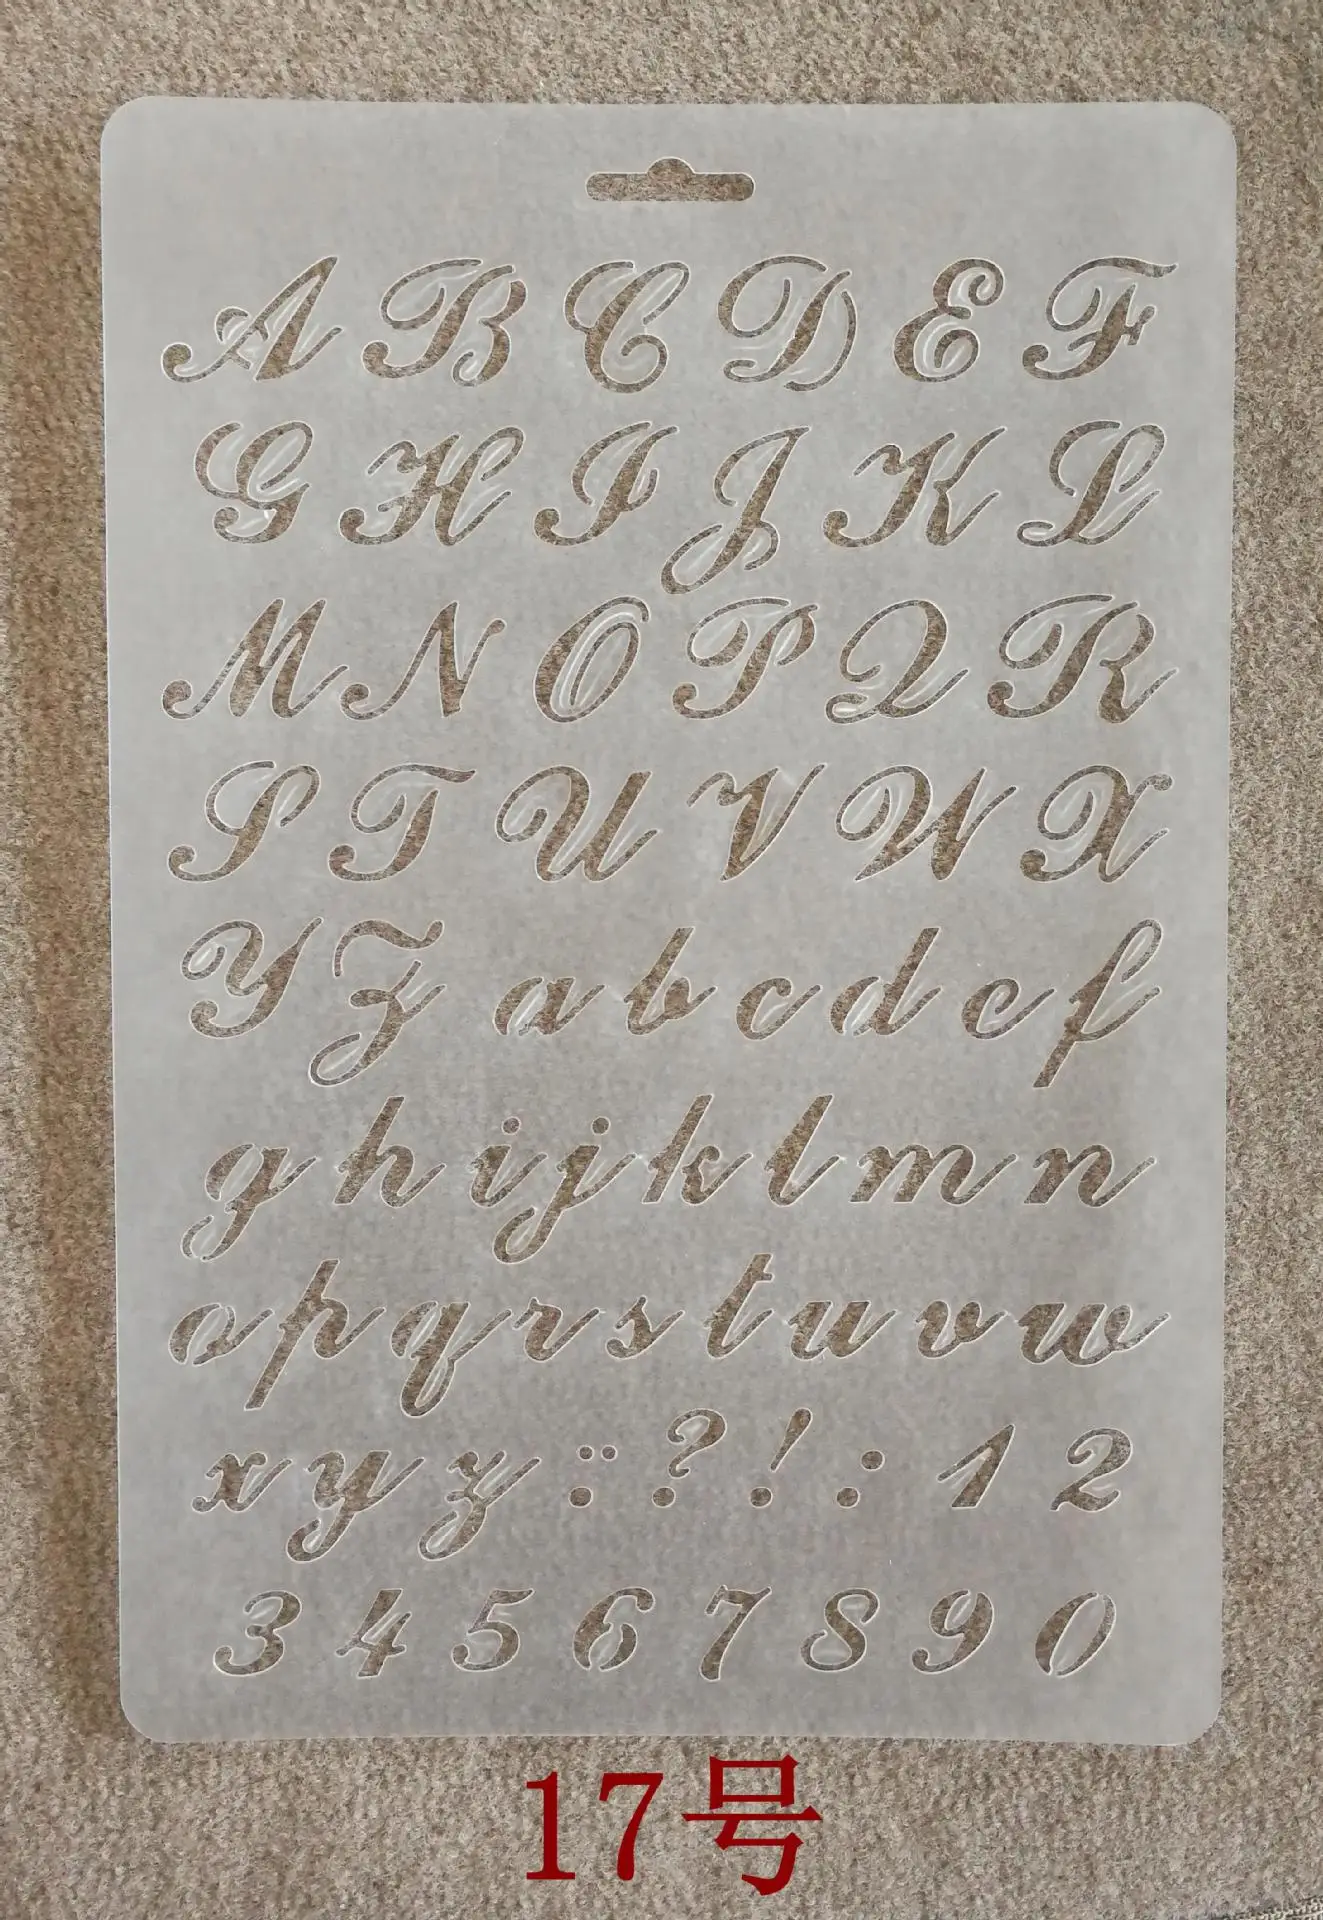 A B C D E F
G H I J K L
M N O P Q R
S T U V W X
Y Z a b c d e f
g h i j k l m n
o p q r s t u v w
x y z ? ! : 1 2
3 4 5 6 7 8 9 0
17号